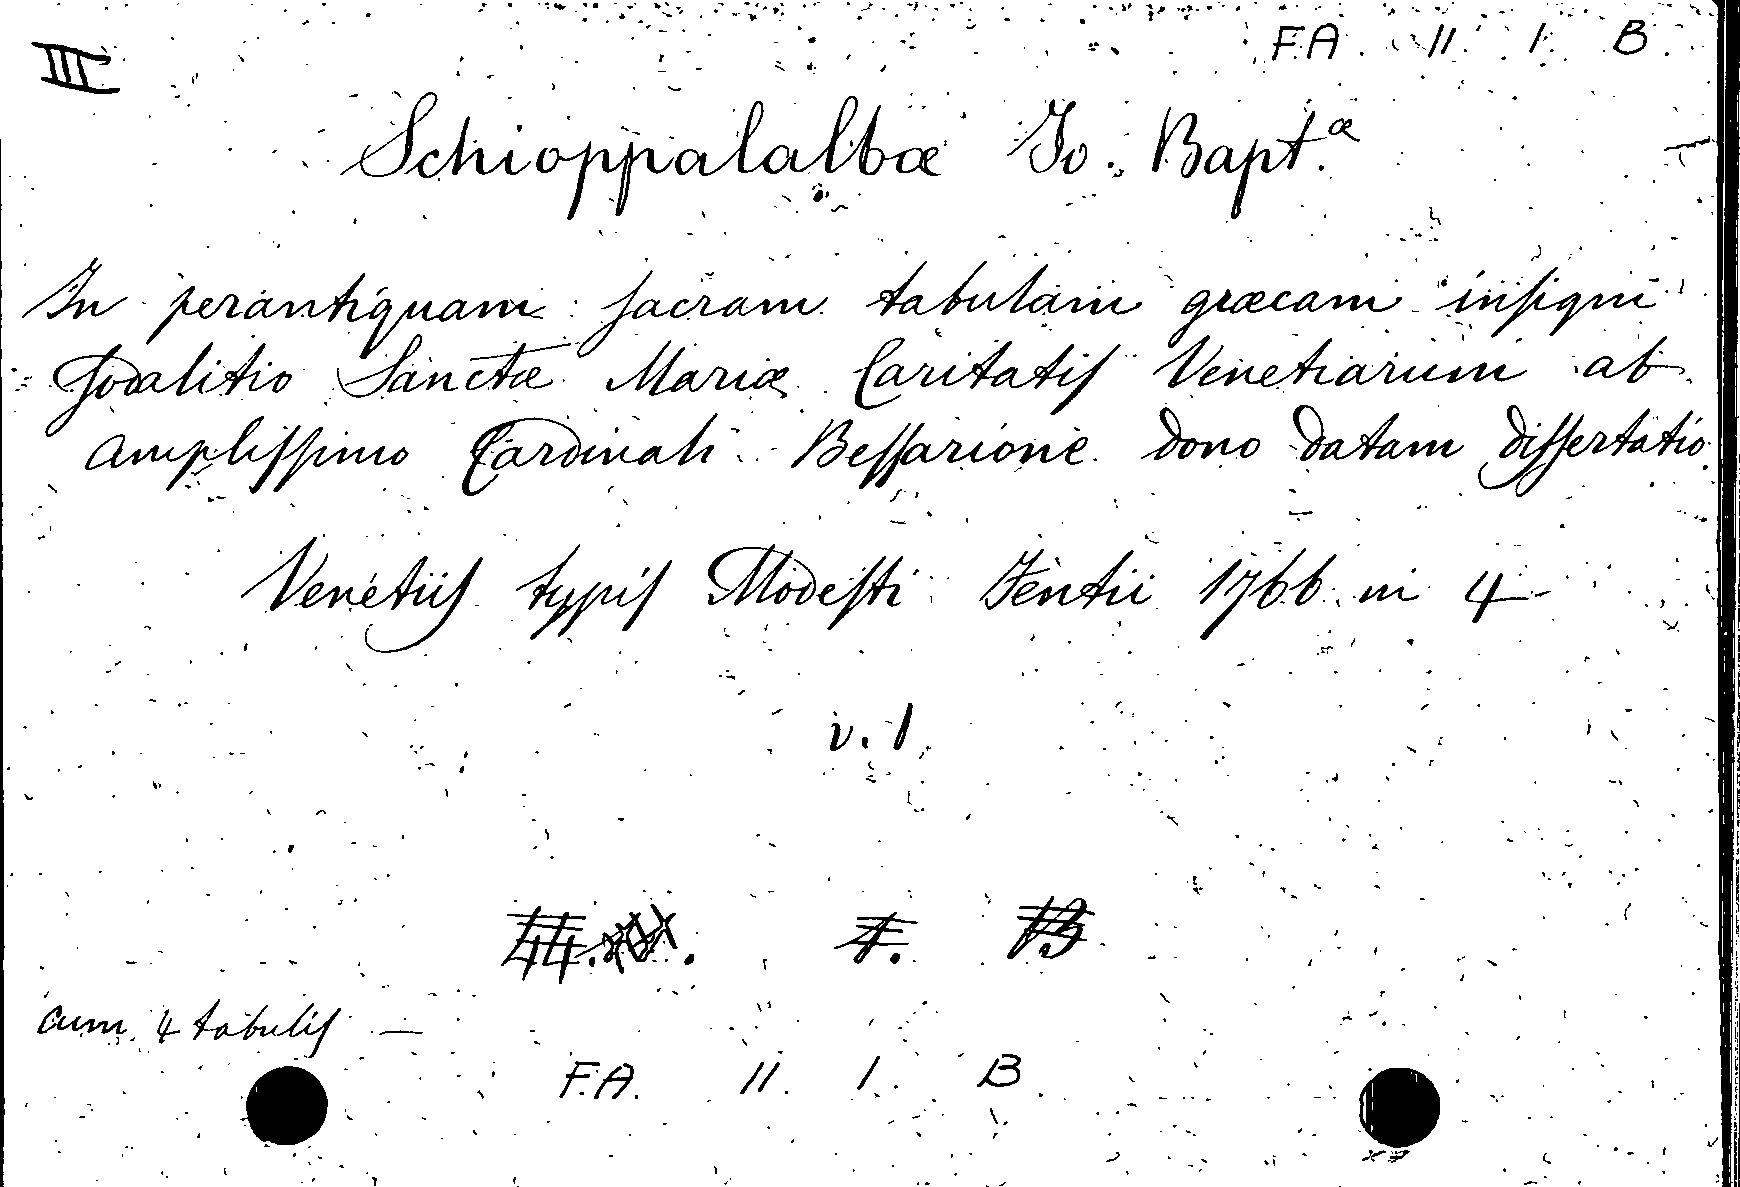 III
F.A. II. 1. B.
Schioppalalbæ Jo: Bapt.æ
In perantiquam sacram tabulam græcam insigni
sodalitio Sanctæ Mariæ Caritatis Venetiarum ab
amplissimo Cardinali Bessarione dono datam dissertatio.
Venetiis typis Modesti Fentii 1766 in 4-
v. 1
1. B
cum 4 tabulis —
F.A. II. 1. B.